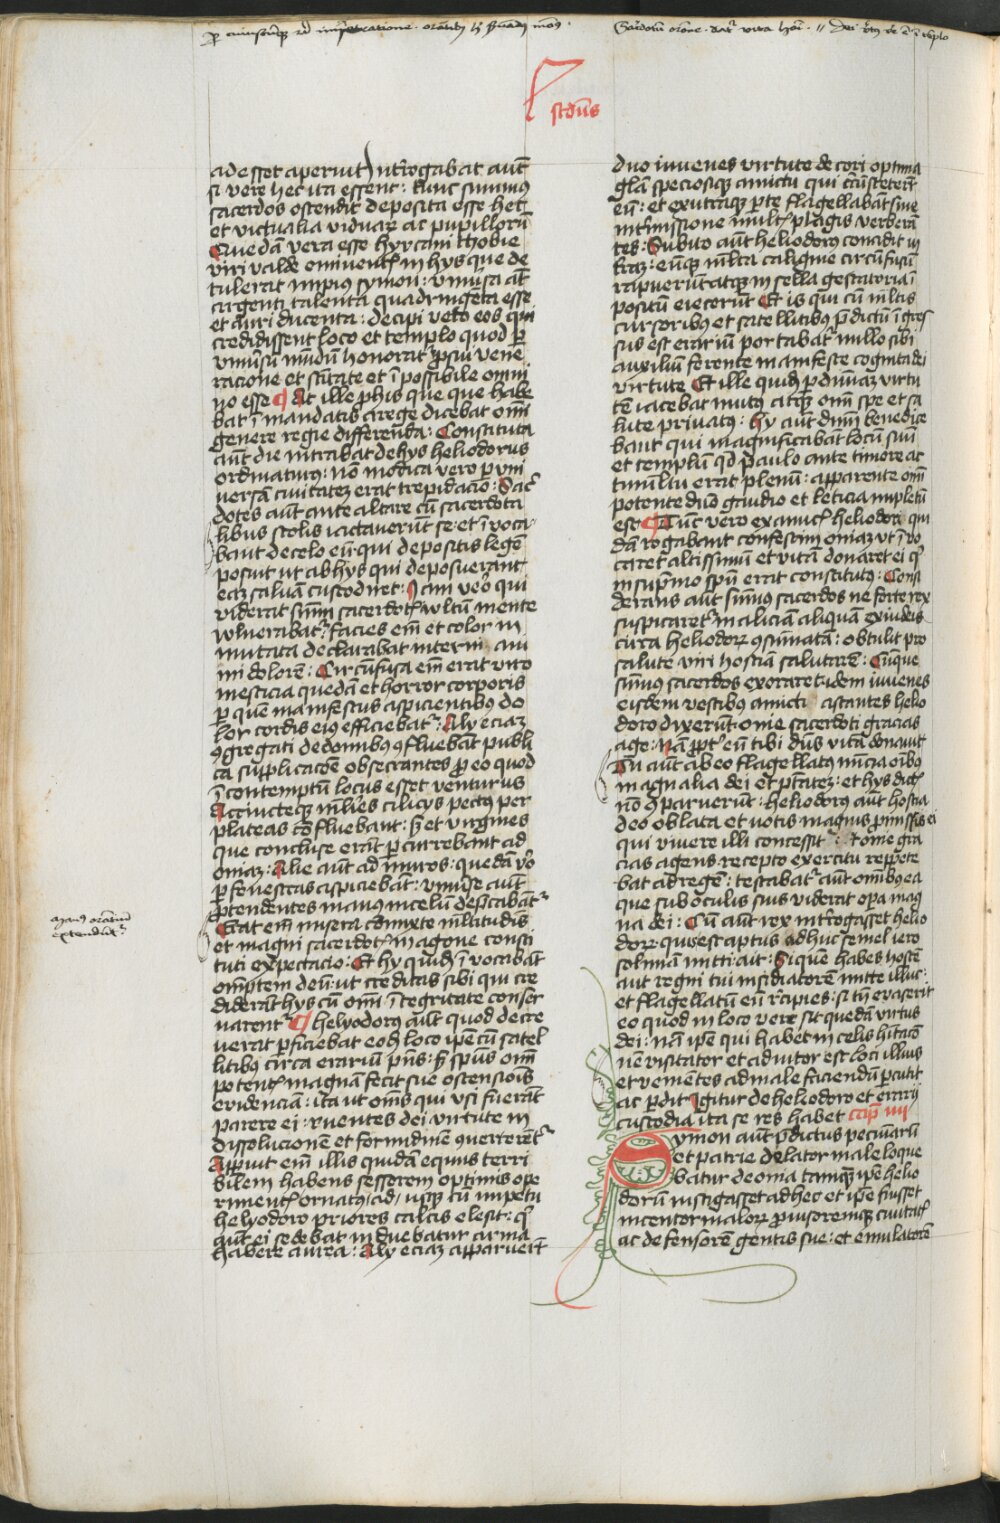 Secundus
adesset aperuit Interrogabat aut̄
si vere hec ita essent: Tunc summus
sacerdos ostendit deposita esse hec
et victualia viduaꝝ ac pupilloꝝ
Quedā vera esse hyrcani thobie
viri valde eminentꝭ in hys que de
tulerat impius symon: vniūsa aūt
argenti talenta quadringēta esse
et auri ducenta: decipi vero eos qui
credidissent loco et templo quod ꝑ
vniūsū mūdū honorat᷑ ꝓ sui vene
racione et sc̄itate et īpossibile omni
no esse ¶ At ille ꝓ hijs que habe
bat ī mandatis a rege dicebat omī
genere regie differenda: Constituta
aūt die intrabat de hys heliodorus
ordinaturꝰ: nō modica vero ꝑ vni
uersā ciuitatē erat trepidacio: Sac̄
dotes aūt ante altare cū sacerdota
libus stolis iactauerūt se: et īuoca
bant de celo eū qui depositis legē
posuit ut ab hys qui deposuerant
ea saluam custodiret: Iam vero qui
viderat sūmi sacerdotꝭ vultū mente
vulnerabat᷑: facies em̄ et color in
mutata declarabat internū ani
mi dolorē: Circūfusa em̄ erat viro
mesticia quedā et horror corporis
ꝑ quem manifestus aspicientibus do
lor cordis eiꝰ efficiebat᷑: Aly eciaꝫ
ꝯgregati de domibus ꝯfluebāt publi
ca supplicacōe obsecrantes ꝓ eo quod
ī contemptū locus esset venturus
Accincteqꝫ mūlies cilicys pectus per
plateas cōfluebant: sꝫ et virgines
que concluse erāt ꝓcurrebant ad
oniaꝫ: Alie aūt ad muros: quedā vo
ꝑ fenestras aspiciebāt: vniūse aūt
ꝓtendentes manus in celū deꝓcabāt᷑
Erat em̄ misera cōmixte mltitudīs
et magni sacerdotꝭ in agone consti
tuti expectacio: Et hy quidē īuocabāt
omptem deū: ut creditas sibi qui cre
diderāt hys cū omī ītegritate conser
uarent᷑ ¶ helyodorꝰ aūt quod decre
uerat ꝑficiebat eodē loco ipē cū satel
litibus circa erariū pn̄s: sꝫ spūs omī
potentꝭ magnā fecit sue ostensionis
euidenciā: ita ut om̄s qui ausi fuerāt
parere ei: ruentes dei virtute in
dissolucionē et formidinē ꝯuerterēt᷑
Apparuit em̄ illis quidā equus terri
bilem habens sessorem optimis ope
rimentꝭ ornatꝰ
helyodoro priores calces elisit: qꝫ
aūt ei sedebat induebatur arma
habere aurea: Aly eciaꝫ apparuerūt
duo iuuenes virtute decori optima
glā speciosiqꝫ amictu qui circūsteterūt
eū: et ex utraqꝫ ꝑte flagellabāt sine
intermissione multꝭ plagis verberā
tes: Subito aūt heliodorꝰ concidit in
trā: eūqꝫ multa caligine circūfusū
rapuerūt atqꝫ in sella gestatoria ī
positū eiecerūt Et is qui cū mltis
cursoribus et satellitibus p̄dictū īgres
sus est erariū portabat᷑ nullo sibi
auxiliū ferente manifeste cognita dei
virtute Et ille quidē ꝑ diuinā virtu
tē iacebat mutꝰ atqꝫ omī spe et sa
lute priuatus: hy aūt dnm̄ benedice
bant qui magnificabat locū suū
et templū qd̄ paulo ante timore ac
tumultu erat plenū: apparente omī
potente dnō gaudio et leticia impletū
est ¶ Tūc vero ex amicꝭ heliodori qui
dā rogabant confestim oniaꝫ vt īuo
caret altissimū et vitā donaret ei qꝫ
in supmo spū erat constitutus: Consi
derans aūt summus sacerdos ne forte rex
suspicaret᷑ maliciam aliquā ex iudeis
circa heliodorꝝ ꝯsummatā: obtulit pro
salute viri hostiā salutarē: Cūqꝫ
sūmus sacerdos exoraret idem iuuenes
eisdem vestibꝰ amicti astantes helio
doro dixerūt: onie sacerdoti gracias
age: nā ꝓpt᷑ eū tibi dn̄s vitā donauit
Tu aūt ab eo flagellatꝰ nūcia oībus
magnalia dei et ptātez: et hys dictꝭ
nō ꝯparuerūt: heliodorꝰ aūt hostia
deo oblata et votis magnis ꝓmissis ei
qui viuere illi concessit: et onie gra
cias agens recepto exercitu repete
bat ad regē: testabat᷑ aūt omībꝰ ea
que sub oculis suis viderat opera mag
na dei: Cū aūt rex interrogasset helio
dorꝝ quis esset aptus adhuc semel iero
solimā mitti: ait: Si quē habes hostē
aut regni tui insidiatorē mitte illuc:
et flagellatū eū recipies: si tn̄ euaserit
eo quod in loco vere sit quedā virtus
dei: nā ipē qui habet in celis hītacō
nē visitator et adiutor est loci illius
et venientes ad male faciendū ꝑcutit
ac ꝑdit: Igitur de heliodoro et erarij
custodia ita se res habet cap̄ iiij
Symon aūt p̄dictus pecuniarū
et patrie delator male loque
batur de onia tamqꝫ ipē helio
dorū instigasset ad hec et ipē fuisset
incentor malorꝝ ꝓuisoremqꝫ ciuitatꝭ
ac defensorē gentis sue: et emulatorē
manus orantium
extendunt᷑